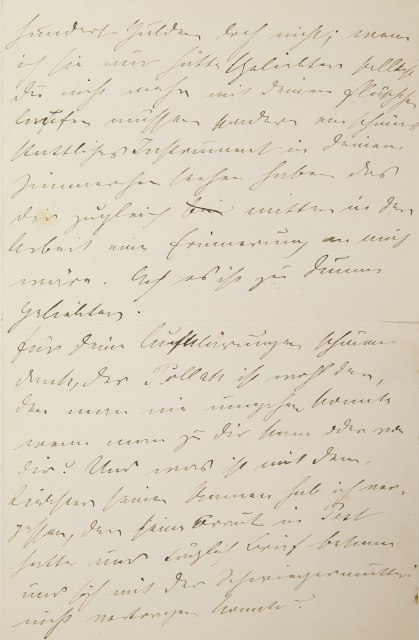 hundert Gulden doch nicht; wenn
ich sie nur hätte Geliebter solltest
Du nicht mehr mit deinem
laufen müssen sondern ein schönes
stattliches Instrument in deinem
Zimmerchen stehen haben das
dir zugleich bei mitten in der
Arbeit eine Erinnerung an mich
wäre. Ach es ist zu dumm
Geliebter.
für deine Aufklärungen schönen
dank, der Pollak ist wohl der,
den man nie umgehen konnte
wenn man zu dir kam oder von
dir? Und was ist mit dem,
seinen Namen hab ich ver-
gessen, der seine Braut in Pest
hatte und täglich Brief bekam
und sich mit der Schwiegermutter
nicht vertragen konnte?